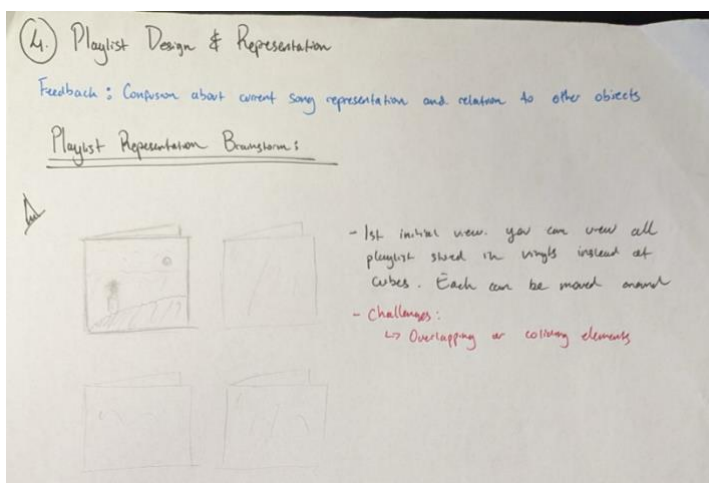 4. Playlist Design & Representation
Feedback: Confusion about current song representation and relation to other objects
Playlist Representation Brainstorm:
- 1st initial view. you can view all
playlist stored in vinyls instead of
cubes. Each can be moved around
- Challenges:
↳ Overlapping or coliding elements